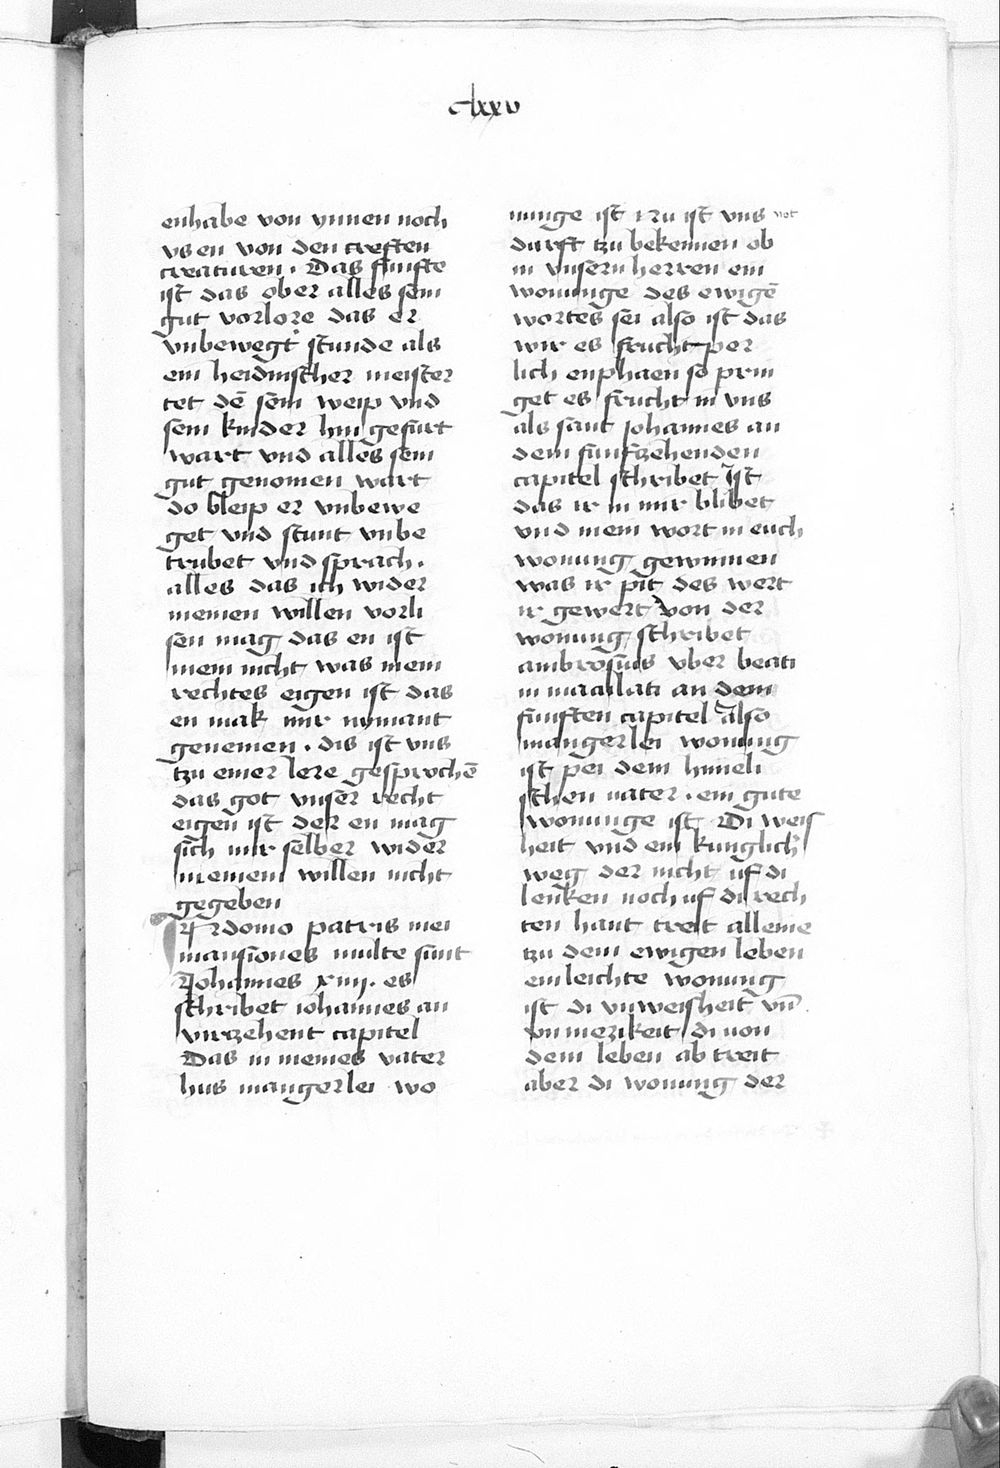 clxxv
enhabe von ynnen noch
vsen von den creften
creaturen. Das funfte
ist das ober alles sein
gut vorlore das er
vnbewegt stunde als
ein heidnischer meister
tet dē sein weip vnd
sein kinder hin gefurt
wart vnd alles sein
gut genomen wart
do bleip er vnbewe
get vnd stunt vnbe
trubet vnd sprach.
alles das ich wider
meinen willen vorli
sen mag das en ist
mein nicht was mein
rechtes eigen ist das
en mak mir nymant
genemen. dis ist vns
tzu einer lere gesprochē
das got vnser recht
eigen ist der en mag
sich mir selber wider
meinem willen nicht
gegeben
In domo patris mei
mansiones multe sunt
Johannes xiiij. es
schribet iohannes an
virzehent capitel
Das in meines vater
hus mangerlei wo
nunge ist Nu ist vns not
durft tzu bekennen ob
in vnsern herren ein
wonunge des ewigē
wortes sei also ist das
wir es fruchtper
lich enphaen so prin
get es frucht in vns
als sant johannes an
dem funfzehenden
capitel schribet Ist
das ir in mir blibet
vnd mein wort in euch
wonung gewinnen
was ir pit des wert
ir gewert von der
wonung schribet
ambrosius vber beati
in maculati an dem
funften capitel also
mangerlei wonung
ist pei dem himeli
schen uater. ein gute
wonunge ist Di weis
heit vnd ein kunglich
weg der nicht uf di
lenken noch uf di rech
ten hant treit alleine
tzu dem ewigen leben
ein leichte wonung
ist di vnweisheit vn̄
vnmezikeit di uon
dem leben ab treit
aber di wonung der